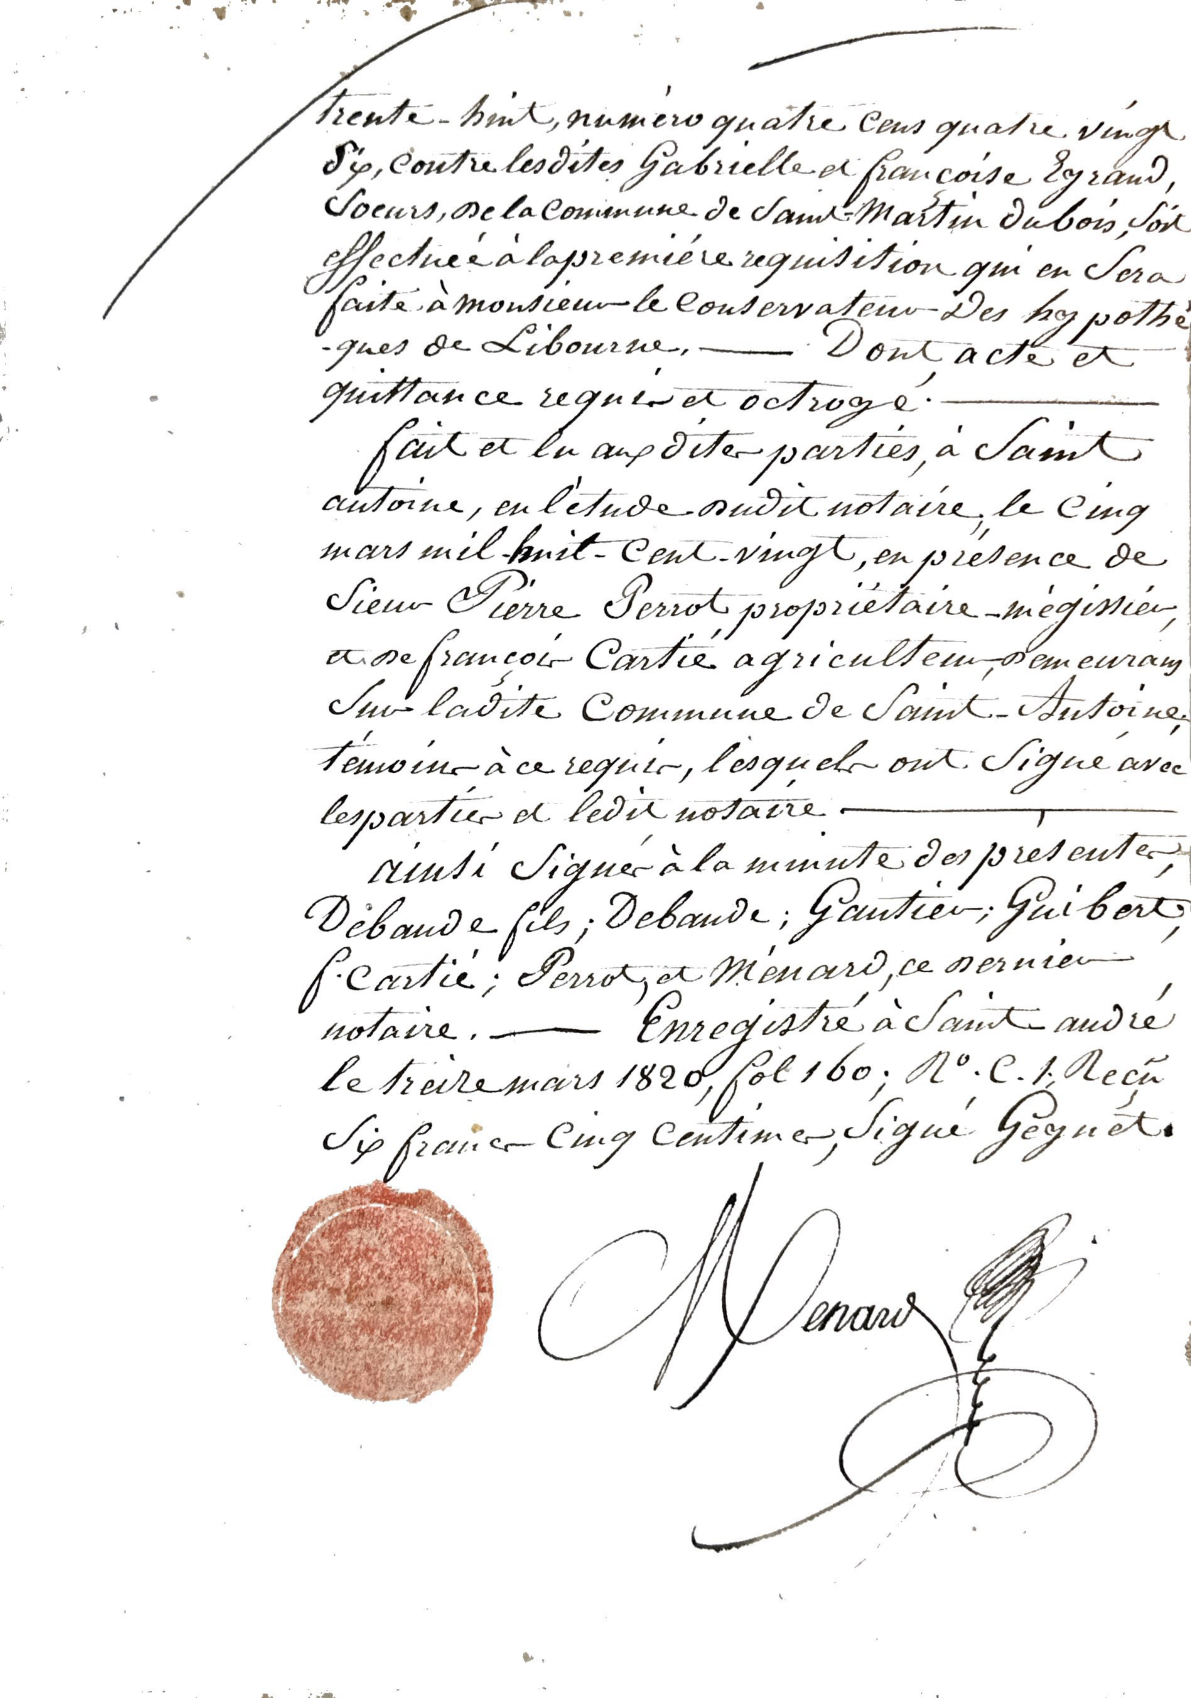 trente-huit, numéro quatre cens quatre vingt
dix, contre lesdites Gabrielle et françoise Eyraud,
soeurs, de la commune de Saint-Martin du bois, soit
effectuée à la première requisition qui en sera
faite à monsieur le conservateur des hypothè
-ques de Libourne. — Dont acte et
quittance requis et octroyé. —
fait et lu auxdites parties, à Saint
antoine, en l'étude dudit notaire, le cinq
mars mil-huit-cent-vingt, en présence de
Sieur Pierre Perrot propriétaire-mégissier,
et de françois Cartié agriculteur, demeurans
sur ladite commune de Saint-Antoine,
témoins à ce requis, lesquels ont signé avec
les parties et ledit notaire —
ainsi signés à la minute des présentes,
Débande fils; Debande; Gautier; Guibert,
f. Cartié; Perrot, et Ménard, ce dernier
notaire. — Enregistré à Saint andré
le treize mars 1820, fol 160; Rº. C. 1. Reçu
six francs cinq centimes, signé Gégnet.
Menard